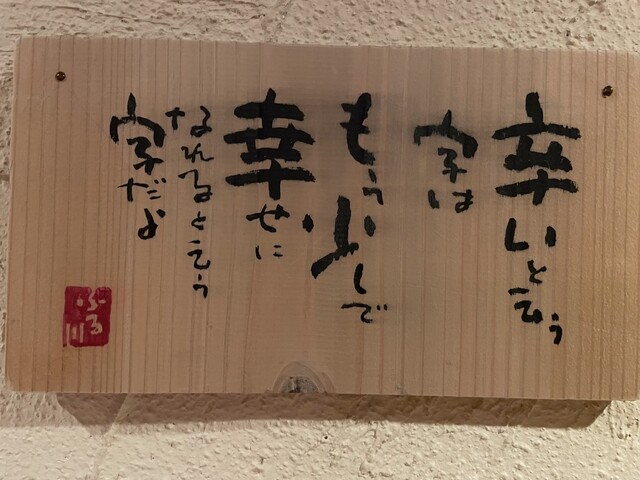 辛いと言う
字は
もう少しで
幸せに
なれると言う
字だよ